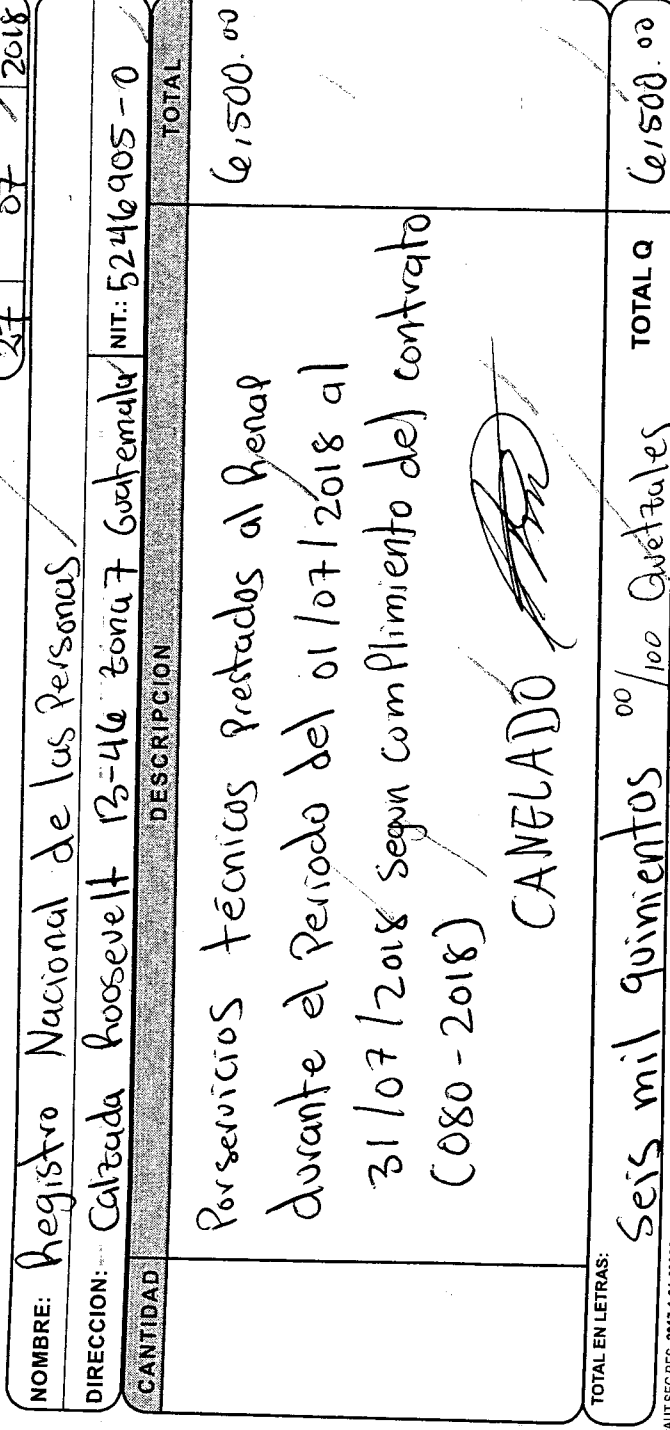 27 07 2018
NOMBRE: Registro Nacional de las Personas
DIRECCION: Calzada Roosevelt 13-46 zona 7 Guatemala NIT.: 5246905-0
CANTIDAD DESCRIPCION TOTAL
Por servicios técnicos Prestados al Renap 6,500.00
durante el Periodo del 01/07/2018 al
31/07/2018 Segun cumplimiento del contrato
(080-2018)
CANELADO
TOTAL EN LETRAS: Seis mil quinientos 00/100 Quetzales TOTAL Q 6,500.00